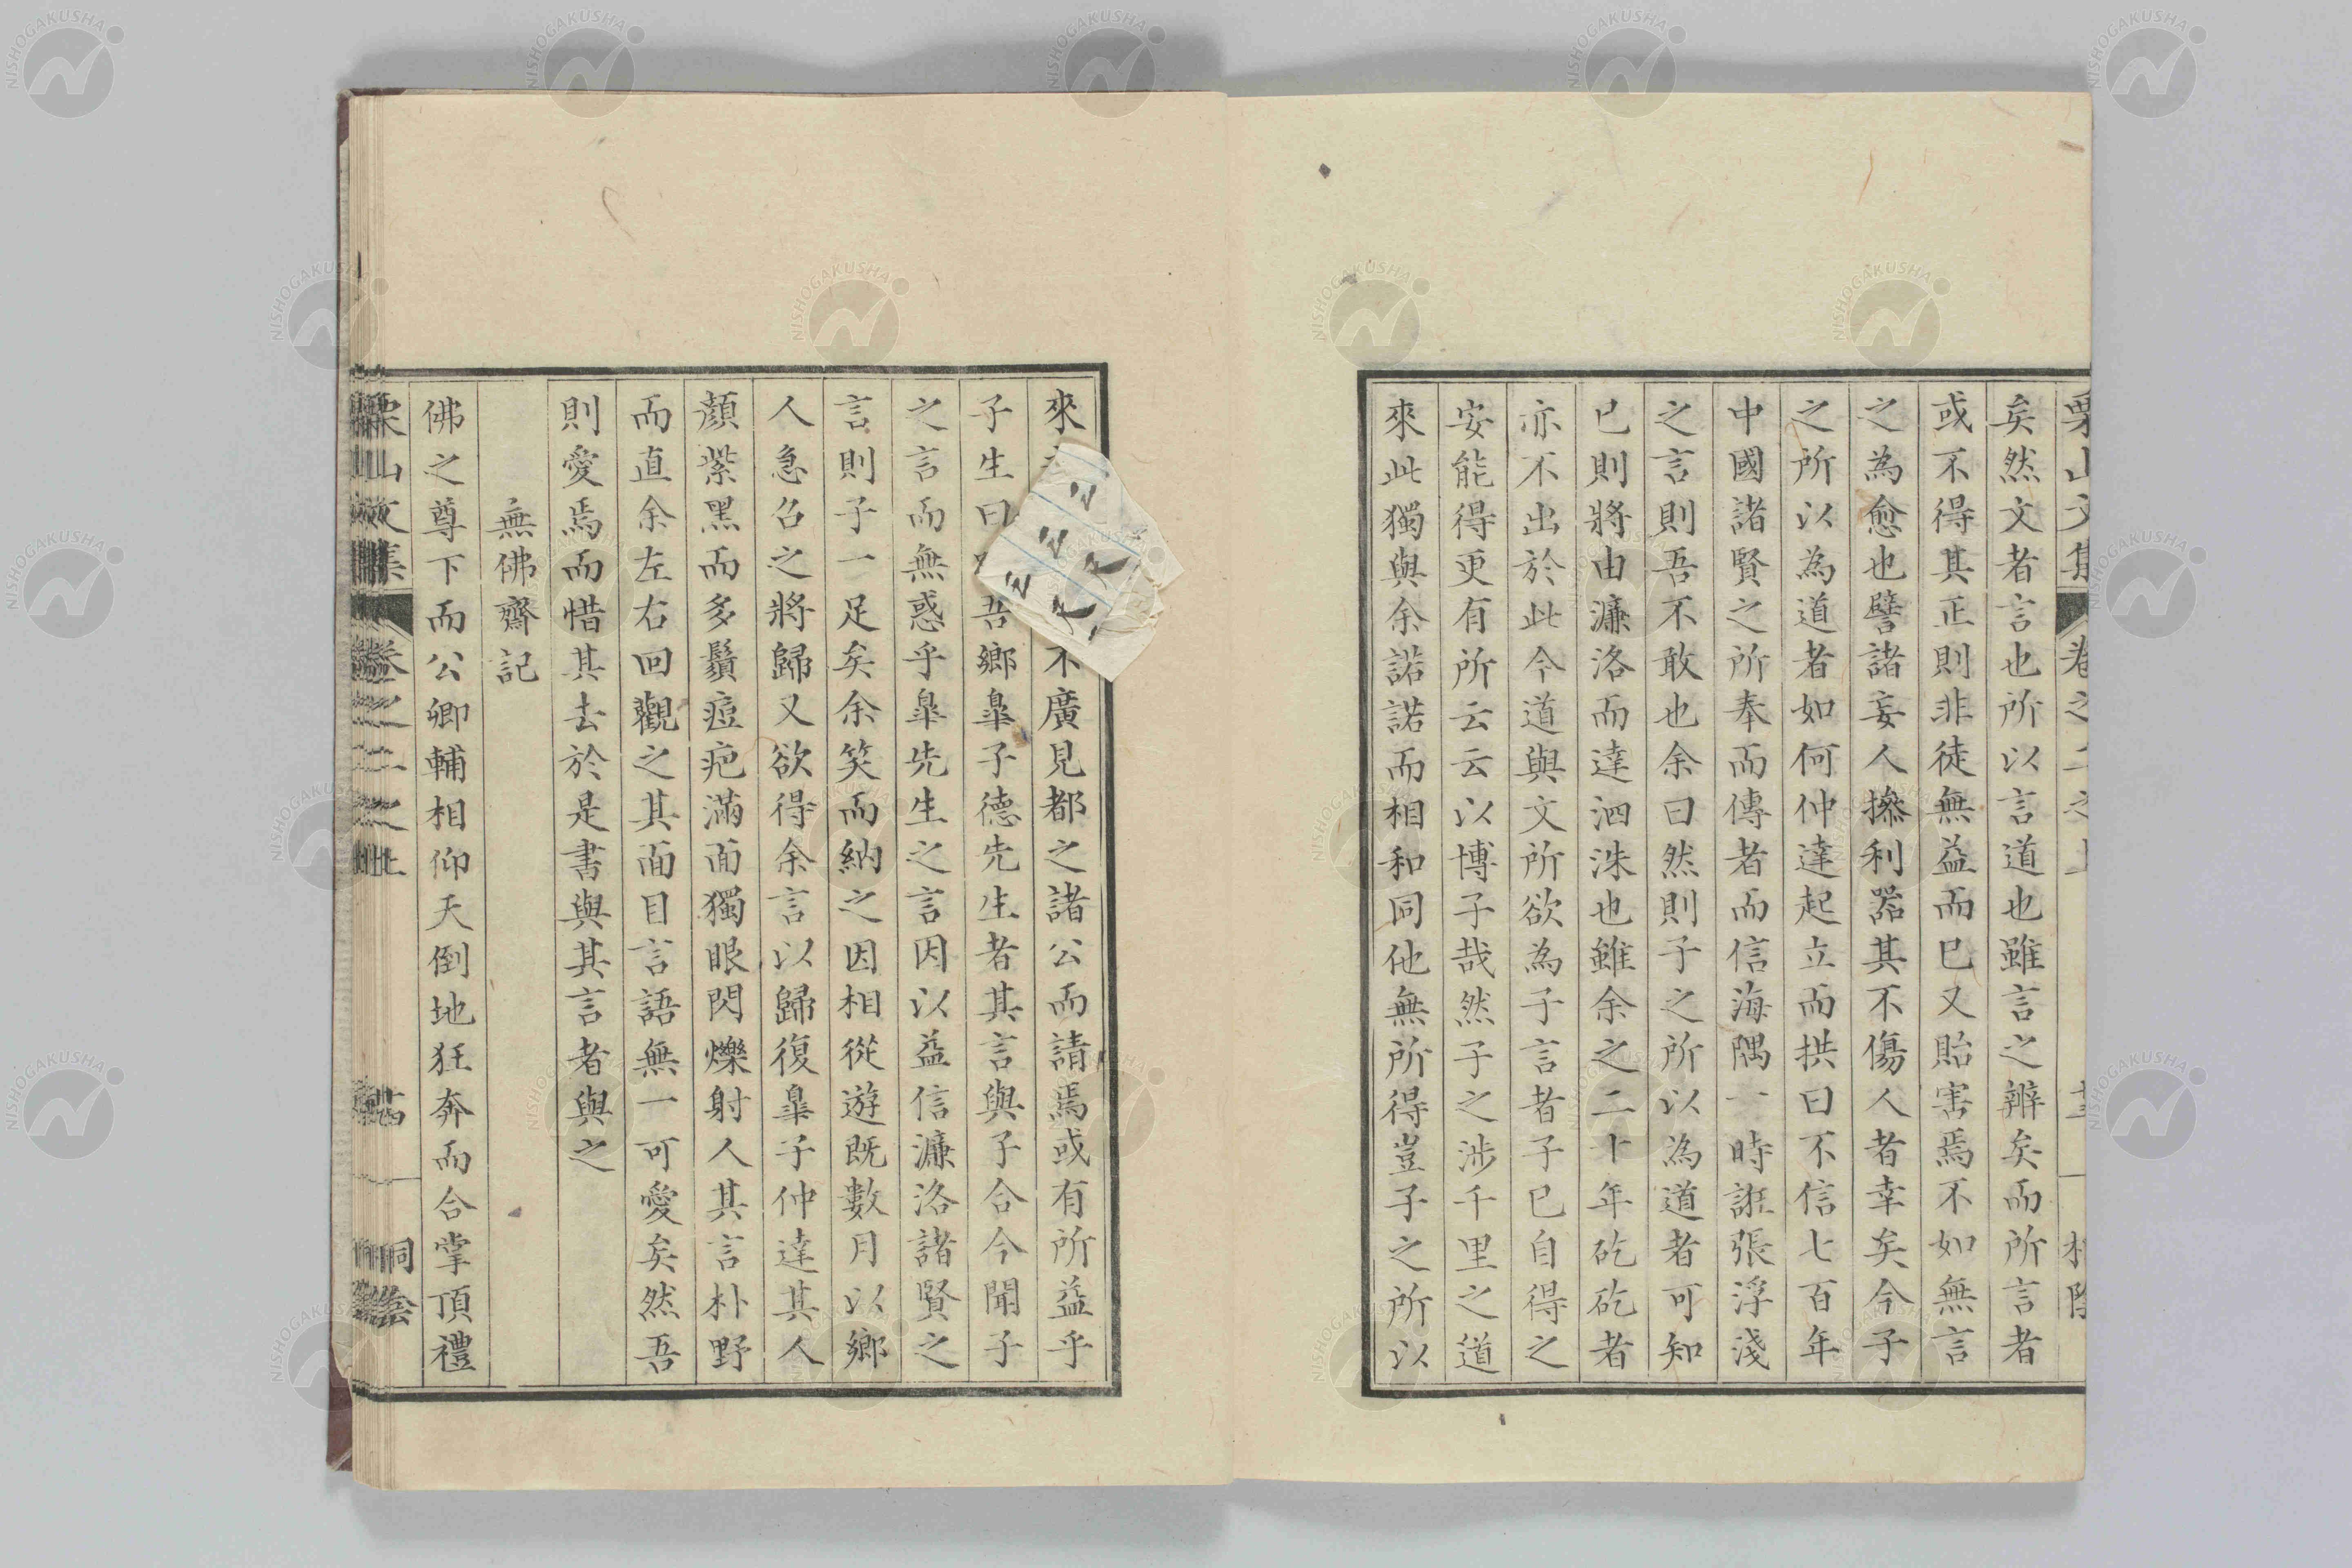 栗山文集 卷之二之上
矣然文者言也所以言道也雖言之辨矣而所言者
或不得其正則非徒無益而已又貽害焉不如無言
之為愈也譬諸妄人搡利器其不傷人者幸矣今子
之所以為道者如何仲達起立而拱曰不信七百年
中國諸賢之所奉而傳者而信海隅一時誑張浮淺
之言則吾不敢也余曰然則子之所以為道者可知
已則將由濂洛而達泗洙也雖余之二十年矻矻者
亦不出於此今道與文所欲為子言者子已自得之
安能得更有所云云以博子哉然子之涉千里之道
來此獨與余諾諾而相和同他無所得豈子之所以
來不廣見都之諸公而請焉或有所益乎
子生曰吾鄉皐子德先生者其言與子合今聞子
之言而無惑乎皐先生之言因以益信濂洛諸賢之
言則子一足矣余笑而納之因相從遊既數月以鄉
人急召之將歸又欲得余言以歸復皐子仲達其人
顏紫黑而多鬚痘疤滿面獨眼閃爍射人其言朴野
而直余左右回觀之其面目言語無一可愛矣然吾
則愛焉而惜其去於是書與其言者與之
無佛齋記
佛之尊下而公卿輔相仰天倒地狂奔而合掌頂禮
栗山文集 卷之二之上 桐陰
NISHOGAKUSHA